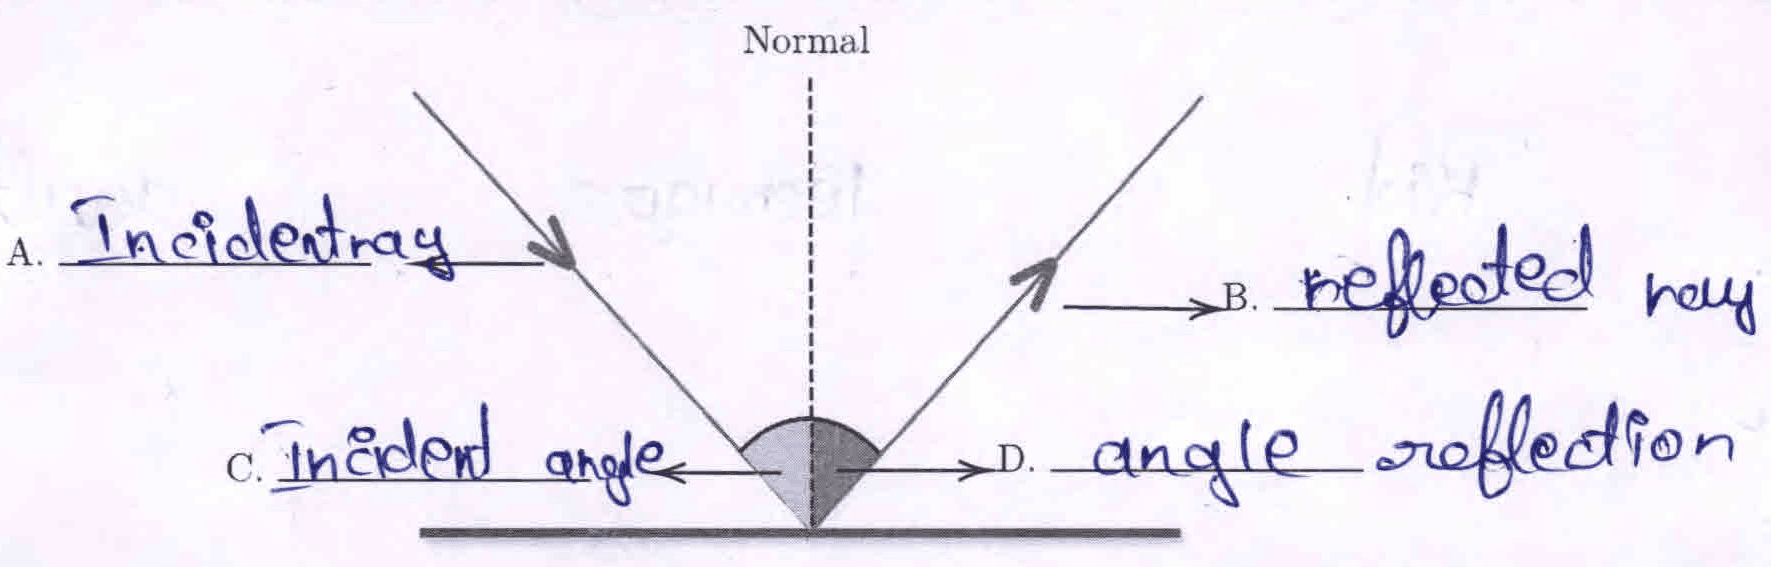 Normal
A. Incident ray
B. reflected ray
C. Incident angle
D. angle reflection